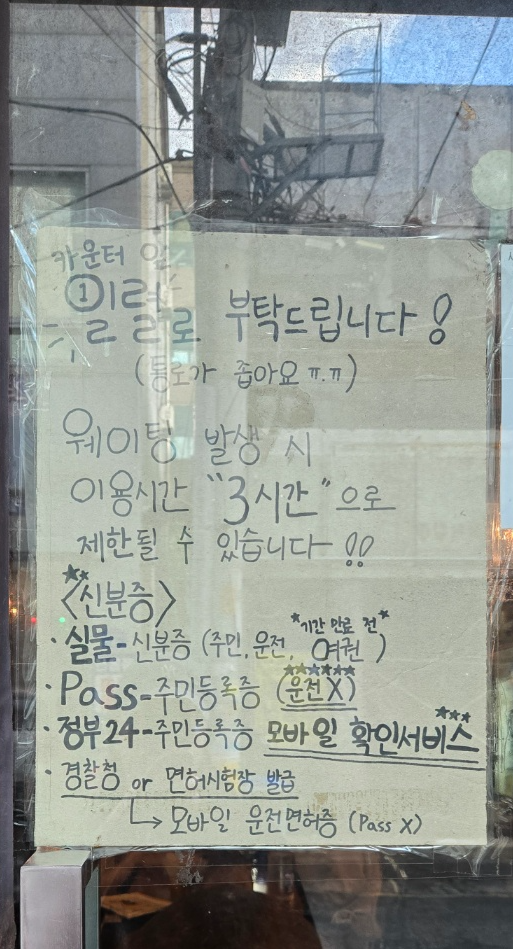 카운터 앞
①일렬로 부탁드립니다!
(통로가 좁아요 ㅠ.ㅠ)
웨이팅 발생 시
이용시간 "3시간"으로
제한될 수 있습니다!!
<신분증>
*기간 만료 전*
· 실물-신분증 (주민, 운전, 여권)
· Pass-주민등록증 (운전X)
· 정부24-주민등록증 모바일 확인서비스
· 경찰청 or 면허시험장 발급
↳ 모바일 운전면허증 (Pass X)